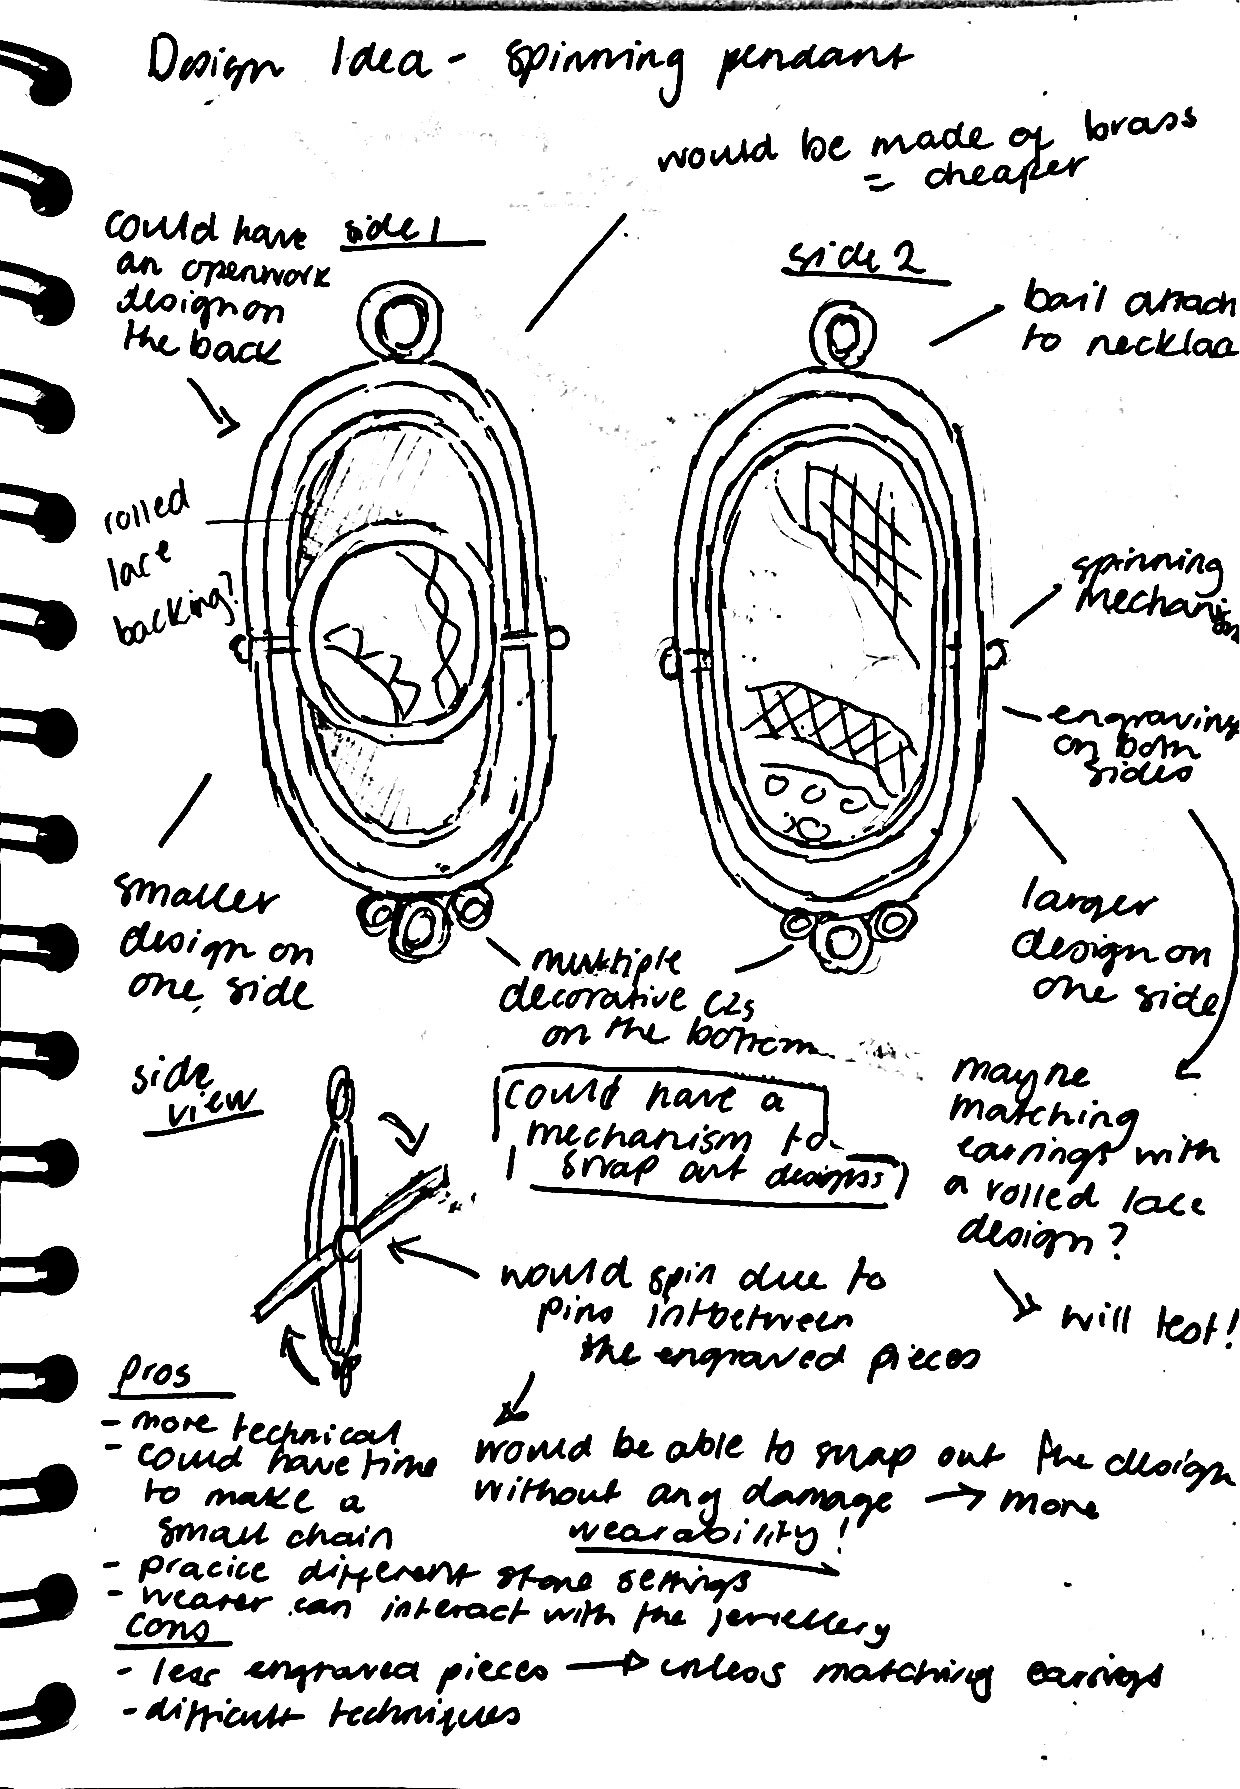 Design Idea - spinning pendant
would be made of brass
= cheaper
could have
an openwork
design on
the back
side 1
side 2
bail attach
to necklac
rolled
lace
backing?
spinning
mechanis
engraving
on both
sides
smaller
design on
one side
multiple
decorative CZs
on the bottom
larger
design on
one side
side
view
could have a
mechanism to
snap out designs
mayne
matching
earrings with
a rolled lace
design?
will test!
would spin due to
pins intbetween
the engraved pieces
would be able to snap out the design
without any damage → more
wearability!
pros
- more technical
- could have time
to make a
small chain
- pracice different stone settings
- wearer can interact with the jewellery
cons
- less engraved pieces → unless matching earrings
- difficult techniques